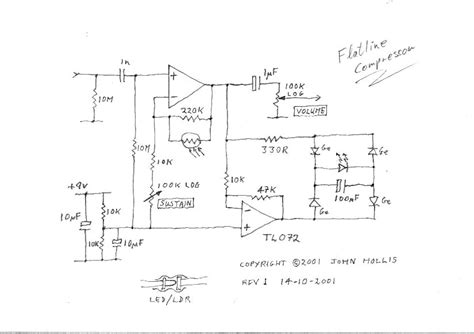 Flatline
Compressor
1n
1µF
100K
LOG
VOLUME
10M
220K
10M
10K
330R
Ge
Ge
100µF
Ge
Ge
100K LOG
SUSTAIN
10K
47K
+9V
10µF
10K
10K
10µF
TL072
COPYRIGHT ©2001 JOHN HOLLIS
REV 1 14-10-2001
LED/LDR